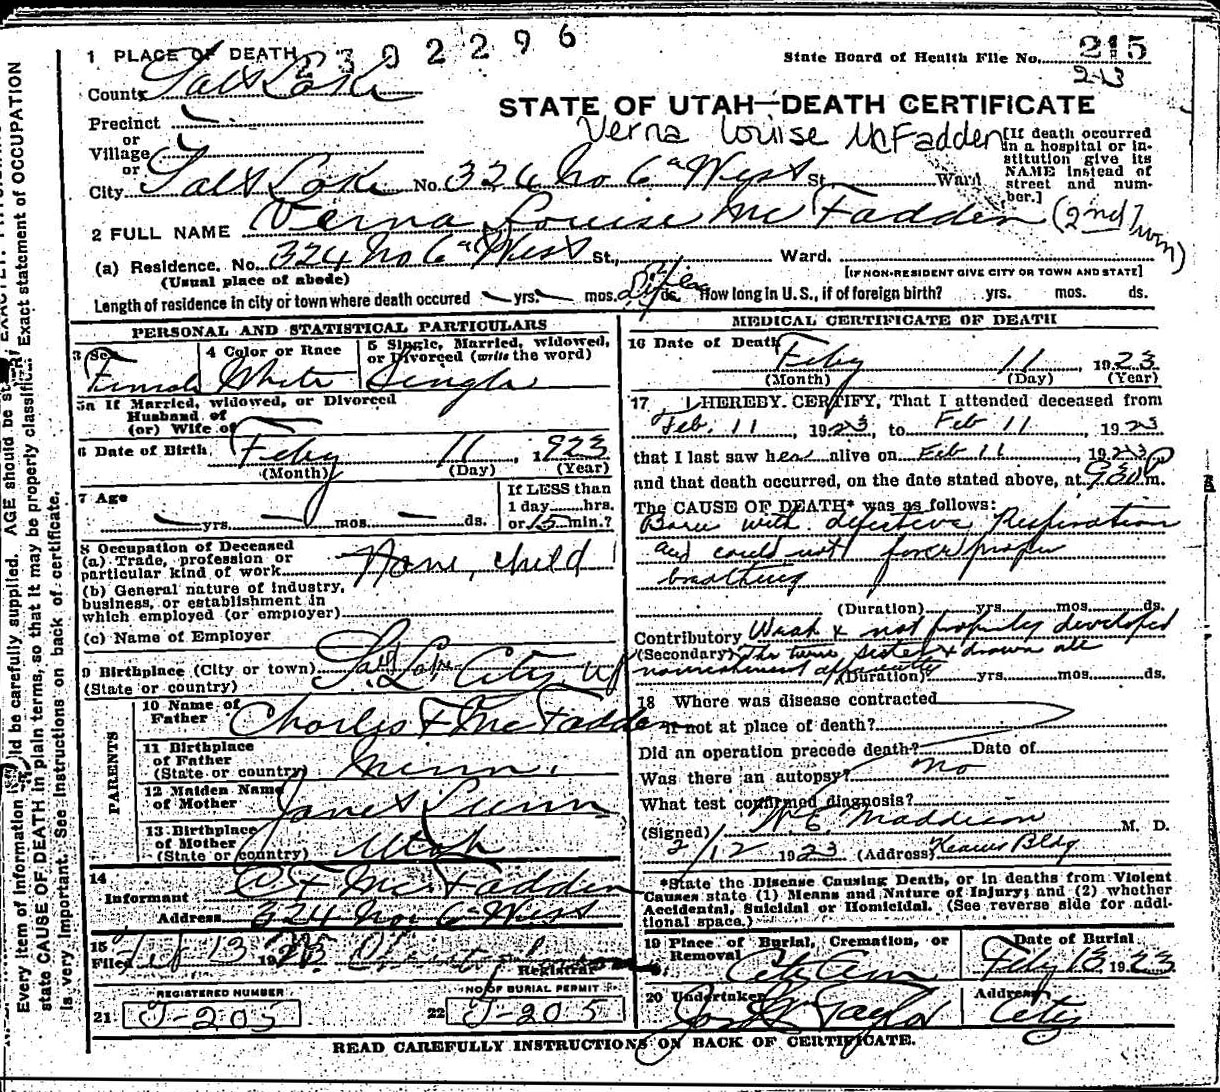 2302296
1 PLACE OF DEATH
State Board of Health File No. 215
213
County Salt Lake
STATE OF UTAH—DEATH CERTIFICATE
Precinct
Verna Louise McFadden
or
Village
or
City Salt Lake No. 324 No 6th West St. Ward
[If death occurred in a hospital or institution give its NAME instead of street and number.]
2 FULL NAME Verna Louise McFadden (2nd Twin)
(a) Residence. No. 324 No 6th West St., Ward.
(Usual place of abode)
[IF NON-RESIDENT GIVE CITY OR TOWN AND STATE]
Length of residence in city or town where death occured yrs. mos. ds. How long in U.S., if of foreign birth? yrs. mos. ds.
PERSONAL AND STATISTICAL PARTICULARS
3 Sex Female
4 Color or Race White
5 Single, Married, widowed, or Divorced (write the word) Single
5a If Married, widowed, or Divorced
Husband of
(or) Wife of
6 Date of Birth. Feby 11, 1923
(Month) (Day) (Year)
7 Age yrs. mos. ds.
If LESS than
1 day hrs.
or 15 min.?
8 Occupation of Deceased
(a) Trade, profession or
particular kind of work None, child
(b) General nature of industry,
business, or establishment in
which employed (or employer)
(c) Name of Employer
9 Birthplace (City or town) S. L. City, Ut
(State or country)
PARENTS
10 Name of
Father Charles F McFadden
11 Birthplace
of Father
(State or country) Minn.
12 Maiden Name
of Mother Janet Lunn
13 Birthplace
of Mother
(State or country) Utah
14
Informant C. F McFadden
Address 324 No 6th West
15
Filed Feb 13 1923
Registrar
REGISTERED NUMBER
21 J-205
NO. OF BURIAL PERMIT
22 J-205
MEDICAL CERTIFICATE OF DEATH
16 Date of Death Feby 11, 1923
(Month) (Day) (Year)
17 I HEREBY CERTIFY, That I attended deceased from
Feb. 11, 1923, to Feb 11 1923
that I last saw her alive on Feb 11, 1923
and that death occurred, on the date stated above, at 930 P m.
The CAUSE OF DEATH* was as follows:
Born with defective Respiration
and could not proper
breathing
(Duration) yrs. mos. ds.
Contributory Weak & not properly developed
(Secondary) The twin sister drawn all
nourishment apparently
(Duration) yrs. mos. ds.
18 Where was disease contracted
if not at place of death?
Did an operation precede death? Date of
Was there an autopsy? no
What test confirmed diagnosis?
(Signed) W E Maddison M. D.
2/12 1923 (Address) Kearns Bldg
*State the Disease Causing Death, or in deaths from Violent
Causes state (1) Means and Nature of Injury; and (2) whether
Accidental, Suicidal or Homicidal. (See reverse side for addi-
tional space.)
19 Place of Burial, Cremation, or
Removal City Cem
Date of Burial
Feby 13 1923
20 Undertaker Jos Wm Taylor
Address City
READ CAREFULLY INSTRUCTIONS ON BACK OF CERTIFICATE.
Every item of information should be carefully supplied. AGE should be
state CAUSE OF DEATH in plain terms, so that it may be properly classified. Exact statement of OCCUPATION
is very important. See instructions on back of certificate.